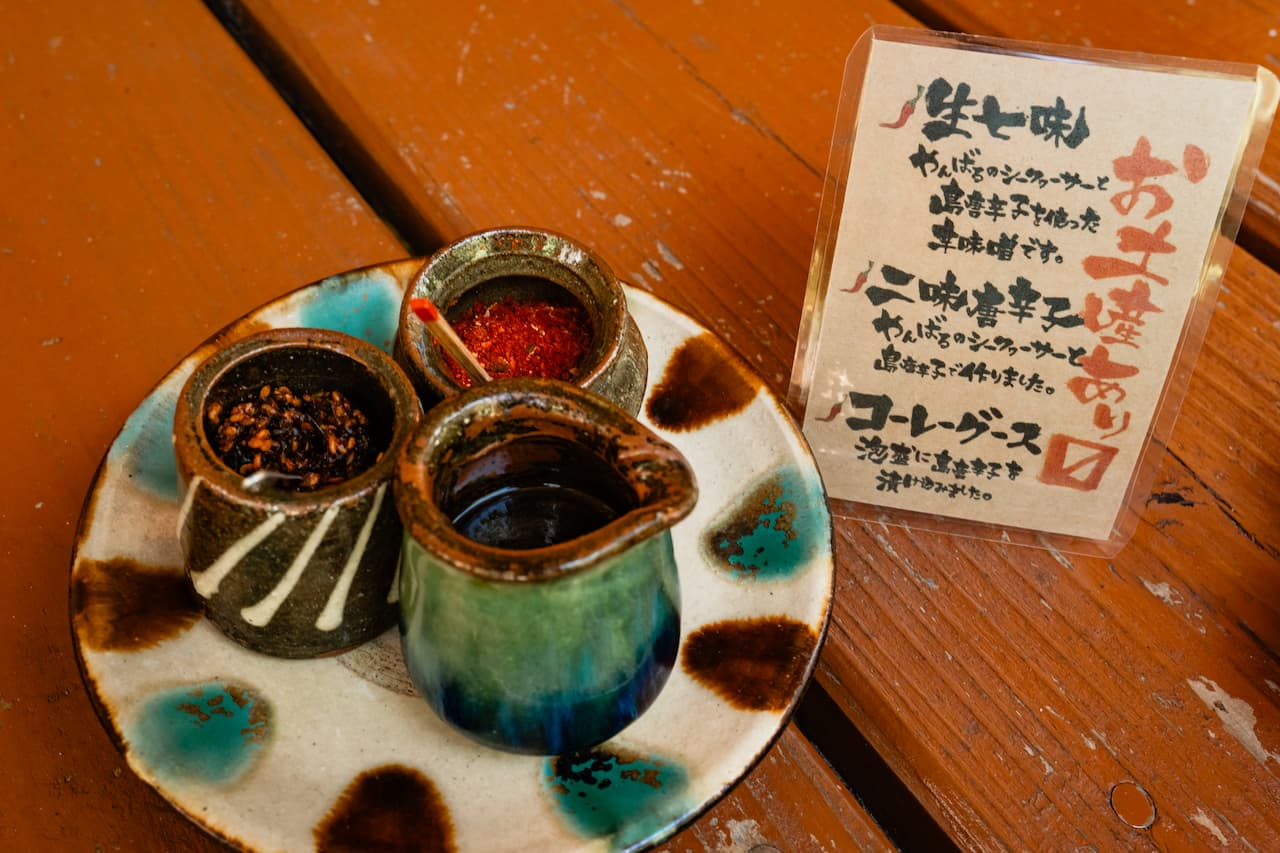 お土産あり
生七味
やんばるのシークヮーサーと
島唐辛子を使った
辛味噌です。
二味唐辛子
やんばるのシークヮーサーと
島唐辛子で作りました。
コーレーグース
泡盛に島唐辛子を
漬け込みました。